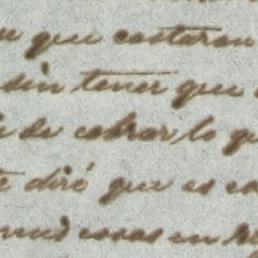 que costaran
sin tener que
de cobrar lo
diré que es
cosas en